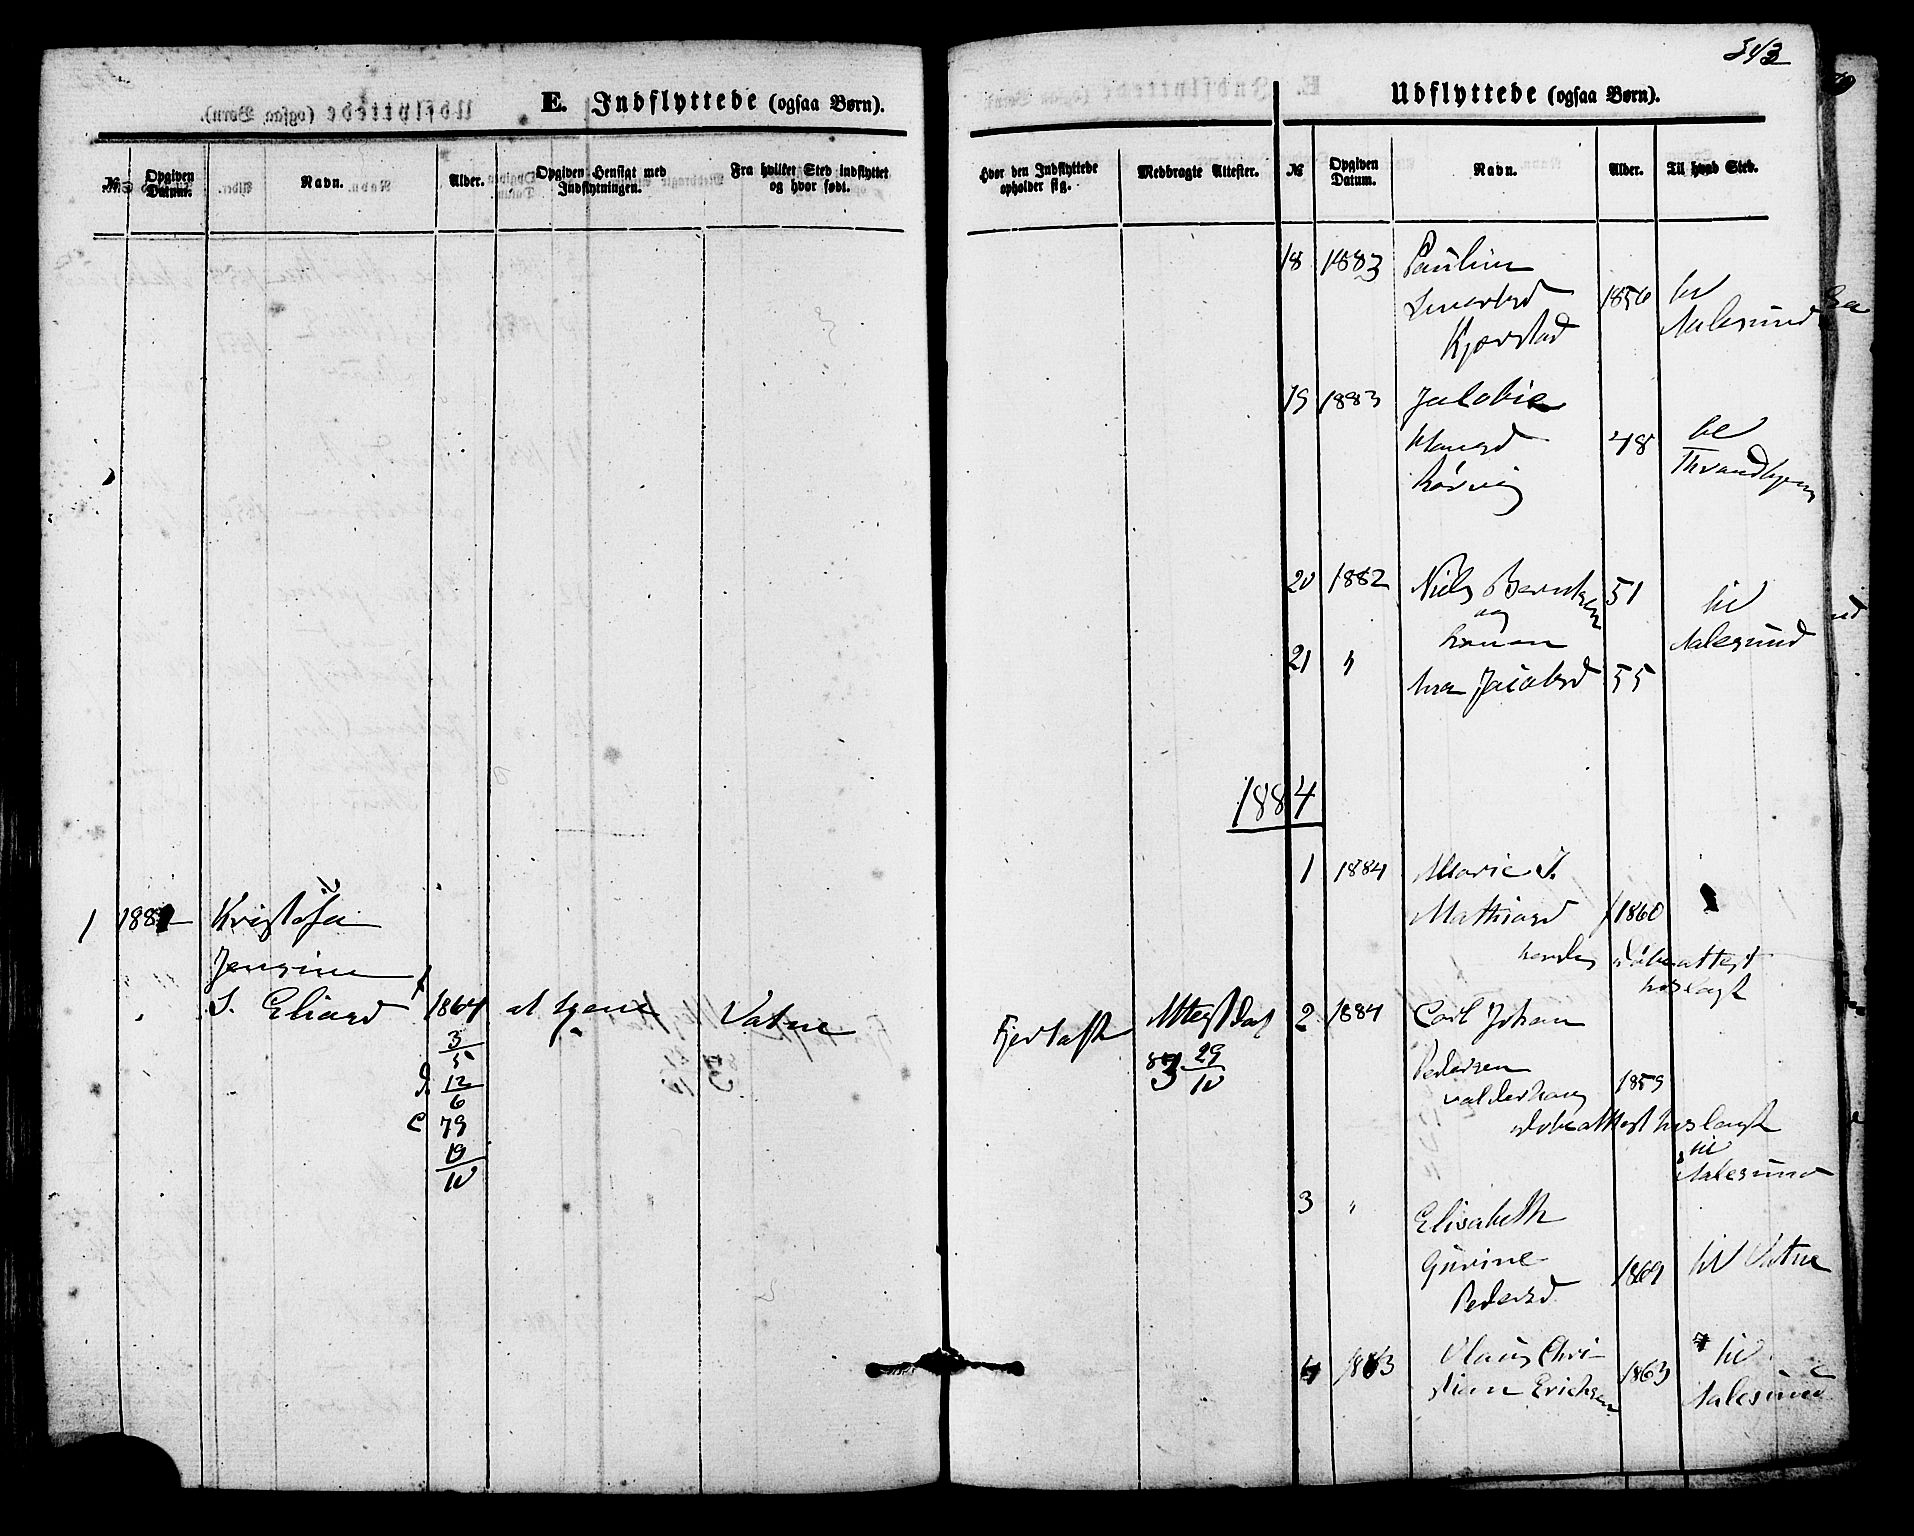 E. Indflyttede (ogsaa Børn).
№
Opgiven Datum.
Navn.
Alder.
Opgiven Hensigt med Indflytningen.
Fra hvilket Sted indflyttet og hvor født.
1 188
Kristofa
Jensine
S. Eliasd f 1864 at tjene Vatne
3
5
d. 12
6
C 79
19
10
343
Udflyttede (ogsaa Børn).
Hvor den Indflyttede opholder sig.
Medbragte Attester.
№
Opgiven Datum.
Navn.
Alder.
Til hvad Sted.
18 1883 Pauline
Kjerstad 1856 til
Aalesund
19 1883 Jakobia
Hansd 48 til
Rørvig
20 1882 Niels Berntsen 51 til
og
konen Aalesund
21 " Jacobsd 55
1884
1 1884 Marie I.
Mathiasd f 1860
døbeattest
Fjertoft Attest Daf
83 29
10
2 1884 Carl Johan
Pedersen
Valderhaug 1859
døbeattest
til
Aalesund
3 " Elisabeth
Gurine 1869 til Vatne
Pedersd
4 1883 Claus Chri-
stian Ericksen 1863 til
Aalesund